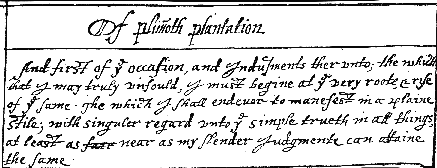 Of plim̄oth plantation
And first of yͤ occasion, and Indusments ther vnto; the which
that I may truly vnfould, I must begine at yͤ very roote & rise
of yͤ same. The which I shall endevor to manefest in a plaine
stile; with singuler regard vnto yͤ simple trueth in all things,
at least as near as my slender Judgmente can attaine
the same